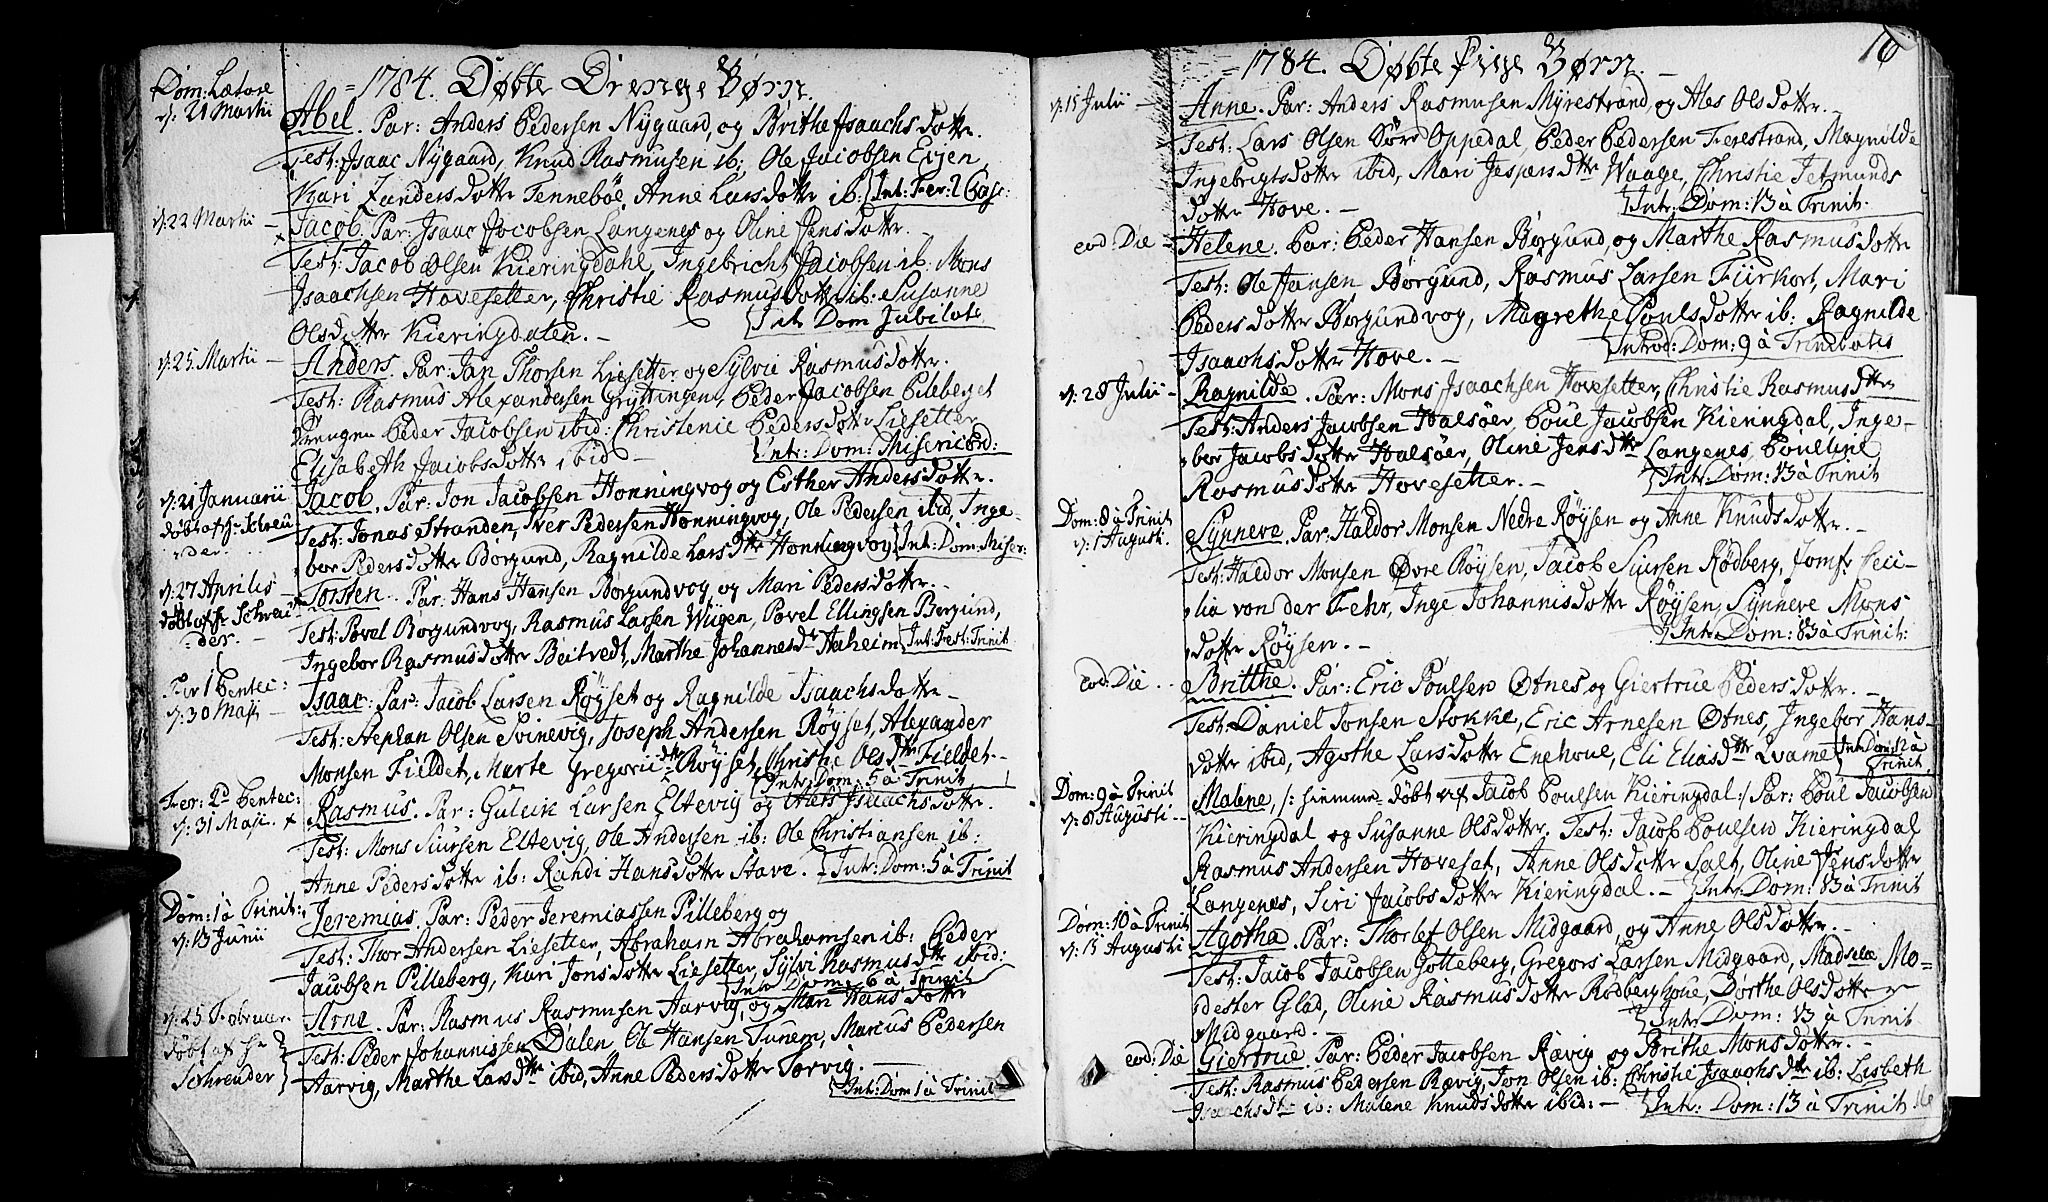 Dom: Lætare
d: 21 Martii
=1784. Døbte Drenge Børn.
Abel. Par: Anders Pedersen Nygaard, og Brithe Isaachs dotter.
Test: Isaac Nygaard, Knud Rasmusen ib: Ole Jacobsen Eijen
Kari Zanders dotter Tennebøe, Anne Lars dotter ib: Int: Fer: 2
d: 22 Martii
Jacob. Par: Isaac Jocobsen Langenes og Oline Jens dotter.
Test: Jacob Olsen Kieringdahl, Ingebricht Jacobsen ib: Mons
Isaachsen Hovesetter, Christie Rasmus dotter ib: Susanne
Olsdotter Kieringdalen. – Int: Dom Jubilate
d: 25 Martii –
Anders. Par: Jan Thorsen Liesetter og Sylvie Rasmusdotter.
Test: Rasmus Alexandersen Gryttingen, Peder Jacobsen Pileberget
Drengen Peder Jacobsen ibid: Christenie Peders dotter Liesetter
Elisabeth Jacobsdotter ibid – Intr: Dom: Misericord:
d: 21 Januarii
døbt af Hr Schreu
der.
Jacob. Par: Jon Jacobsen Honningvog og Esther Anders dotter.
Test: Jonas Stranden, Iver Pedersen Honningvog, Ole Pedersen ibid, Inge-
bor Peders dotter Borgund, Ragnilde Lars dtter Honningvog Int: Dom: Miser:
d: 27 Aprilis
døbt af Hr Schreu
der. –
Torsten. Par: Hans Hansen Borgundvog og Mari Peders dotter. –
Test: Povel Borgundvog, Rasmus Larsen Wiigen, Povel Ellingsen Borgund,
Ingebor Rasmus dotter Beitvedt, Marthe Johannes dr Aaheim Int: Fest: Trinit
Fer 1 Pentec:
d: 30 Maji –
Isaac: Par: Jacob Larsen Røyset og Ragnilde Isaachs dotter –
Test: Stephan Olsen Svinevig, Joseph Andersen Røyset, Alexander
Monsen Fieldet, Marte Gregorii dtr Røyset, Christie Ols dtr Fieldet –
Intr: Dom: 5 à Trinit
Fer: 2 Pentec:
d: 31 Maji.
Rasmus. Par: Guleik Larsen Eltevig og Isaachs dotter.
Test: Mons Siursen Eltevig, Ole Andersen ib: Ole Christiansen ib:
Anne Peders dotter ib: Rahdi Hans dotter Stave. Intr: Dom: 5 à Trinit
Dom: 1 à Trinit:
d: 13 Junii
Jeremias. Par: Peder Jeremiassen Pilleberg og
Test: Thor Andersen Liesetter, Abraham Abrahamsen ib: Peder
Jacobsen Pilleberg, Kari Jons dotter Liesetter, Sylvi Rasmus dtr ibid:
Intr: Dom: 6 à Trinit
d: 25 Februar.
døbt af Hr
Schreuder
Arne. Par: Rasmus Rasmusen Aarvig, og Mari Hans dotter
Test: Peder Johannissen Dalen, Ole Hansen Tunem, Marcus Pedersen
Aarvig, Marthe Lars dtter ibid, Anne Peders dotter Torvig. –
Int: Dom 1 à Trinit
16
=1784. Døbte Pige Børn. –
d: 15 Julii –
Anne. Par: Anders Rasmusen Myrestrand, og Ales Ols dotter. –
Test: Lars Olsen Sør Oppedal, Peder Pedersen Ferestrand, Magnilde
Ingebrigts dotter ibid, Mari Jespers dtter Waage, Christie Jetmunds
dotter Hove. – Intr: Dom: 13 à Trinit.
eod: Die –
Helene. Par: Peder Hansen Borgund, og Marthe Rasmus dotter
Test: Ole Jansen Borgund, Rasmus Larsen Fiirkort, Mari
Peders dotter Borgundvog, Magrethe Pouls dotter ib: Ragnilde
Isaachs dotter Hove. – Introd: Dom: 9 à Trinitatis
d: 28 Julii –
Ragnilde. Par: Mons Isaachsen Hovesetter, Christie Rasmus dtter
Test: Anders Jacobsen Halsøer, Poul Jacobsen Kieringdal, Inge-
bor Jacobs dotter Halsøer, Oline Jens dtr Langenes, Poulline
Rasmus dotter Hovesetter. – Intr: Dom: 13 à Trinit
Dom: 8 à Trinit
d: 1 Augusti.
Synneve. Par: Haldor Monsen Nedre Røysen og Anne Knuds dotter. –
Test: Haldor Monsen Øvre Røysen, Jacob Siursen Rødberg, Jomfr Ceci-
lia von der Fehr, Inge Johannis dotter Røysen, Synneve Mons
dotter Røysen. – Intr: Dom: 13 à Trinit:
eod: Die . .
Britthe. Par: Eric Poulsen Otnes, og Giertrue Peders dotter. –
Test: Daniel Jonsen Stokke, Eric Arnesen Otnes, Ingebor Hans-
dotter ibid, Agothe Lars dotter Enehoue, Eli Elias dtter Qvame Intr: Dom: 12 à
Trinit
Dom: 9 à Trinit
d: 8 Augusti –
Malene, /: hiemme-døbt af Jacob Poulsen Kieringdal :/ Par: Poul Jacobsen
Kieringdal og Susanne Ols dotter. Test: Jacob Poulsen Kieringdal
Rasmus Andersen Hoveset, Anne Ols dotter Salt, Oline Jens dotter
Langenes, Siri Jacobs dotter Kieringdal. – Intr: Dom: 13 à Trinit
Dom: 10 à Trinit
d: 15 Augusti
Agotha. Par: Thorlef Olsen Midgaard, og Anne Ols dotter. –
Test: Jacob Jacobsen Gotteberg, Gregors Larsen Midgaard, Madselæ Mo=
dester Glad, Oline Rasmus dotter Rødberghoue, Dorthe Ols dotter
Midgaard. – Intr: Dom: 13 à Trinit
eod: Die
Giertrue. Par: Peder Jacobsen Rævig og Brithe Mons dotter. –
Test: Rasmus Pedersen Rævig, Jon Olsen ib: Christie Isaachs dtr ib: Lisbeth
Isaachs dtr ib: Malene Knuds dotter ibid: – Intr: Dom: 13 à Trinit.